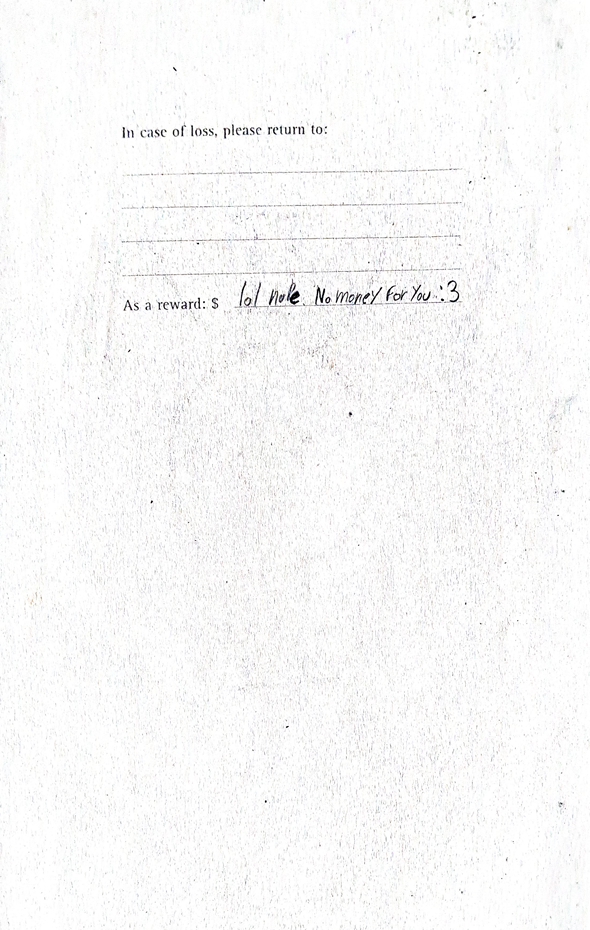 In case of loss, please return to:
As a reward: $ lol nole. No money For You :3